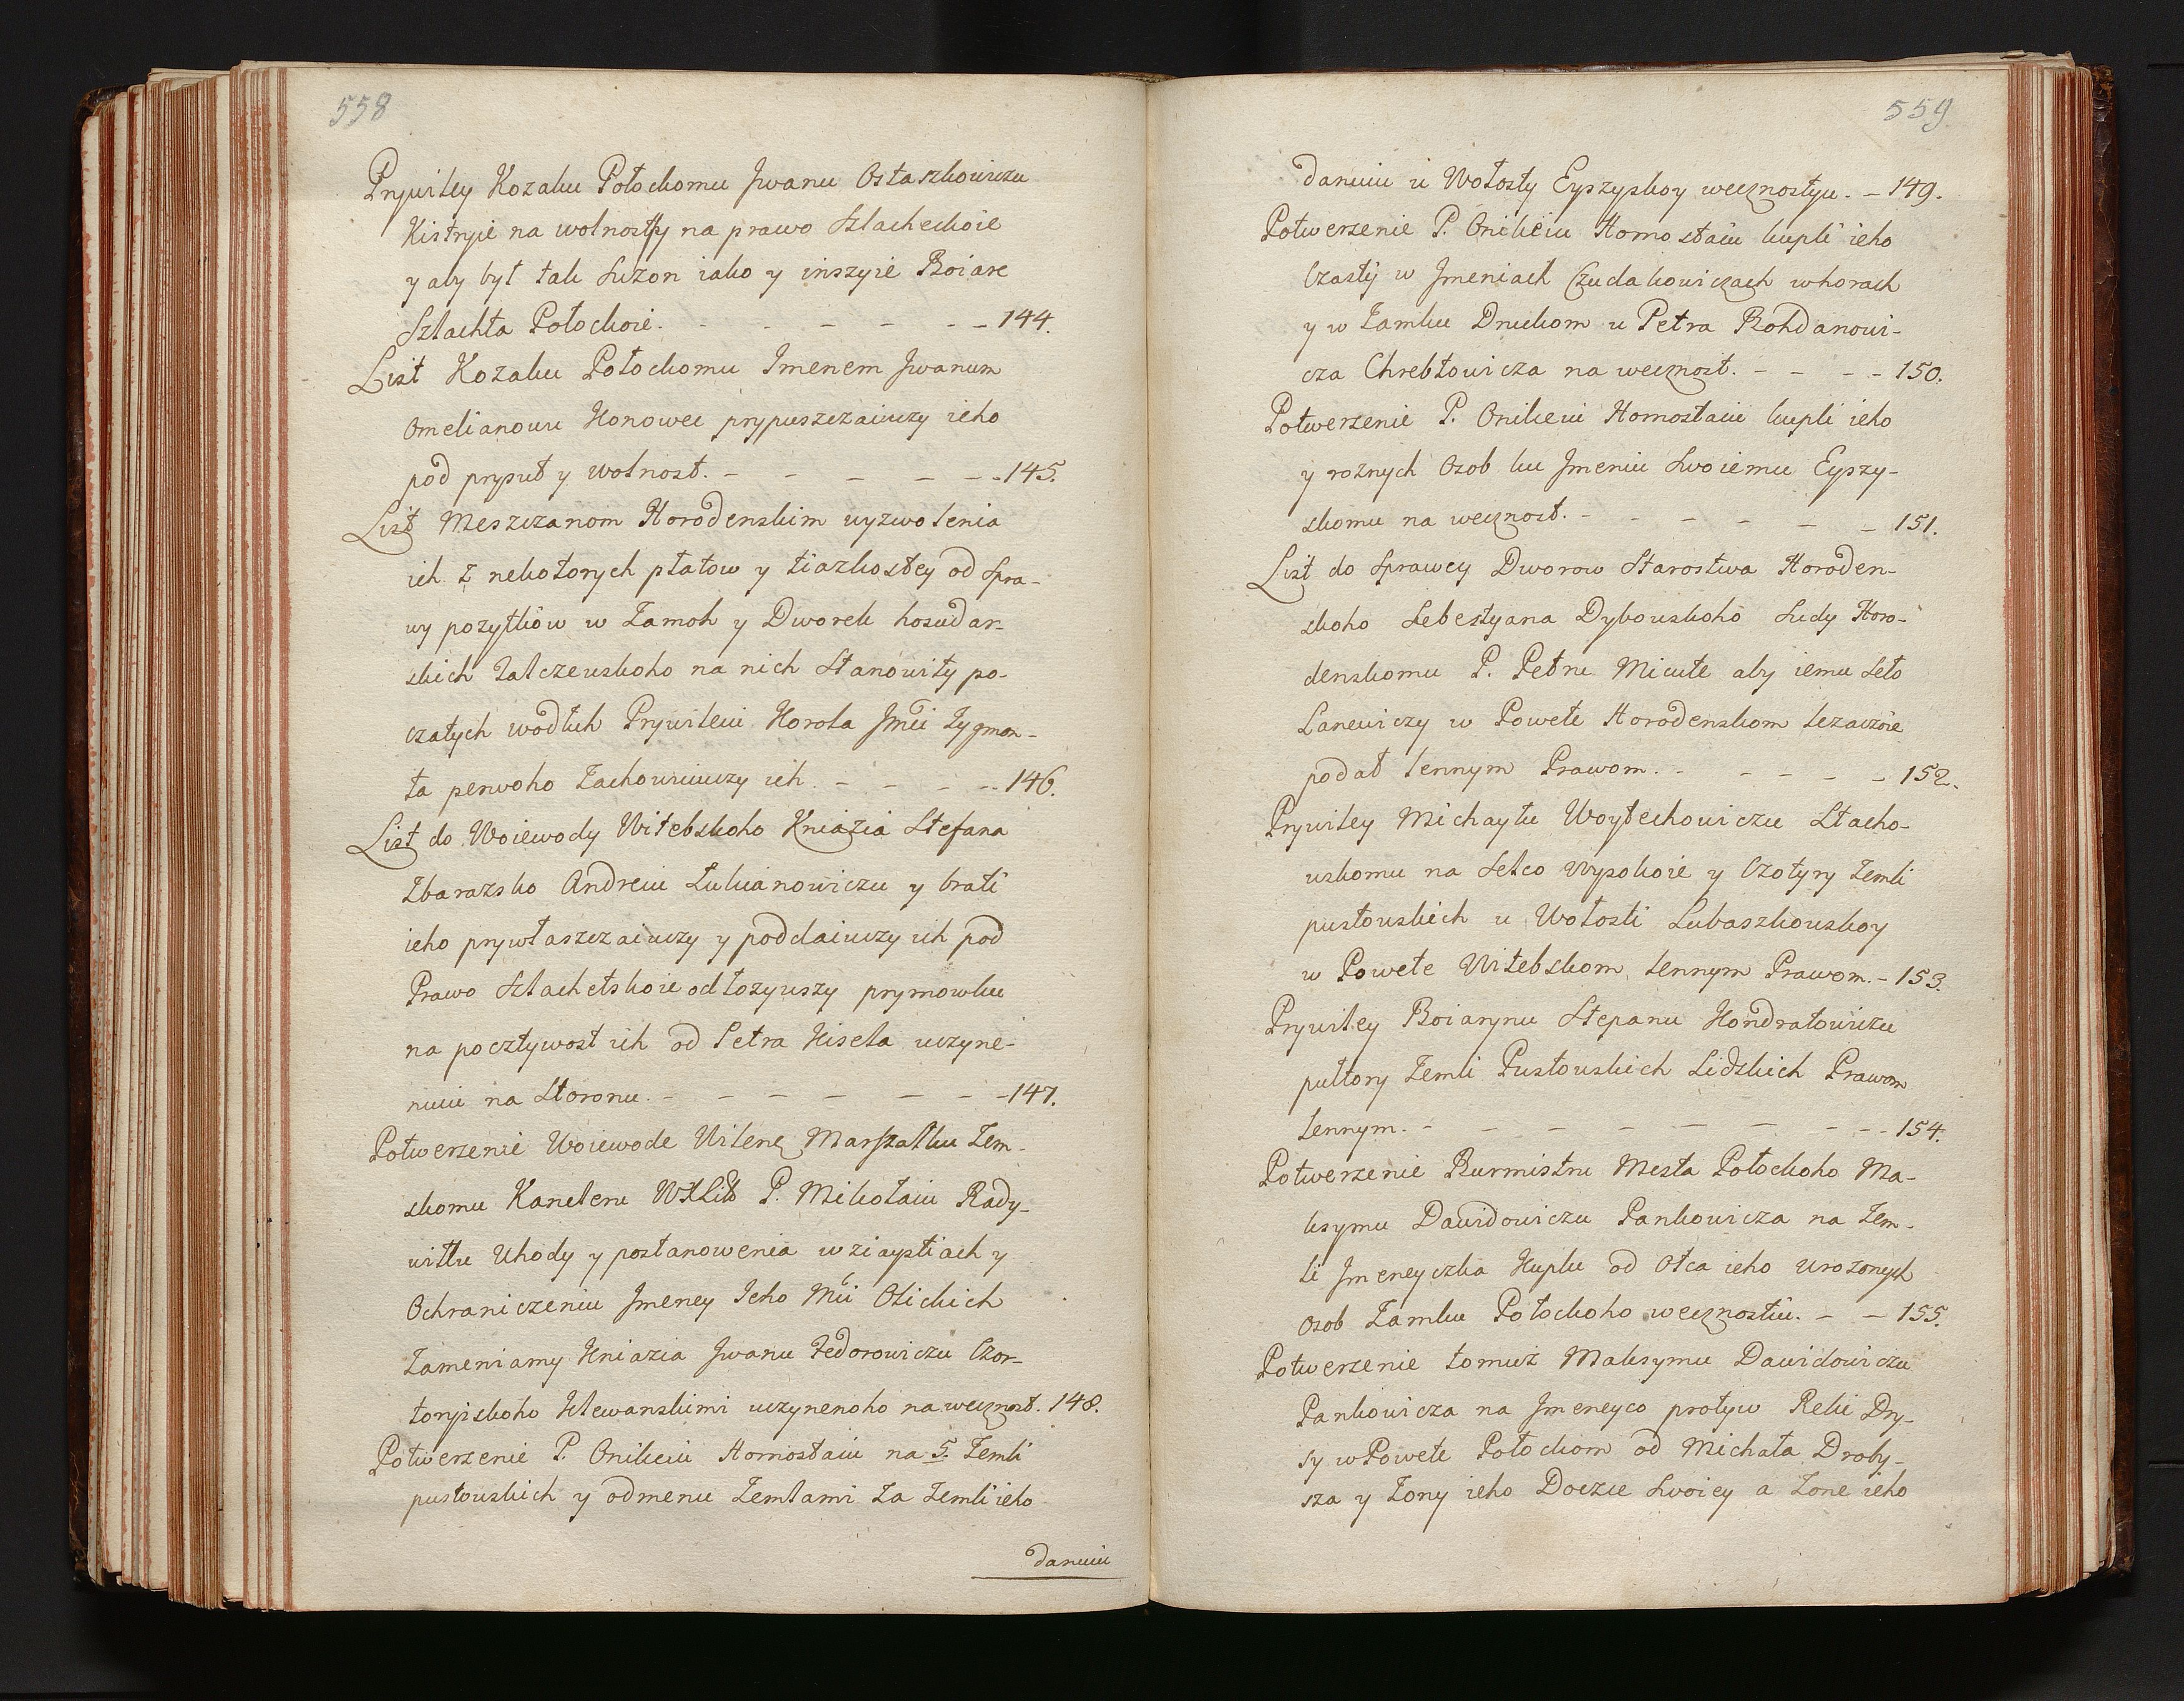 558
Prywiley Kozaku Połockomu Jwanu Ostaszkowiczu
Kistryie na wolnosty na prawo Szlacheckoie
y aby był tak Suzon iako y inszyie Boiare
Szlachta Połockoie. - - - - - - 144.
List Kozaku Połockomu Imenem Jwanum
Omelianowu Konowec prypuszczaiuczy ieho
pod prysut y wolnost. - - - - - - 145.
List Meszczanom Horodenskim wyzwolenia
ich z nekotorych płatow y tiazkostey od Spra-
wy pozytkow w Zamok y Dworek hosudar-
skich Zalczewskoho na nich Stanowity po-
czatych wodłuh Prywileiu Korola Jmći Zygmon-
ta perwoho Zachowuiuczy ich. - - - - 146.
List do Woiewody Witebskoho Kniazia Stefana
Zbarazsko Andreiu Łukianowiczu y brati
ieho prywłaszczaiuczy y poddaiuczy ich pod
Prawo Szlachetskoie odłozywszy prymowku
na pocztywost ich od Petra Kisela uczyne-
nuiu na Storonu. - - - - - - 147.
Potwerzenie Woiewode Wilenę Marszałku Zem-
skomu Kancleru WXLitō P. Mikołaiu Rady-
wiłłu Uhody y postanowenia w ziaystiach y
Ochraniczeniu Jmeney Jeho Mći Olickich
Zameniamy Kniazia Jwanu Fedorowiczu Czor-
toryiskoho Klewanskimi uczynenoho na wecznost. 148.
Potwerzenie P. Onikeiu Hornostaiu na 5. Zemli
pustouskich y odmenu Zemlami Za Zemli ieho
danuiu
559
danuiu u Wołosty Eyszyskoy wecznostyu. - 149.
Potwerzenie P. Onikeiu Hornostaiu kupli ieho
Czasty w Jmeniach Czudakowiczach w horach
y w Zamku Druckom u Petra Bohdanowi-
cza Chrebtowicza na wecznost. - - - - 150.
Potwerzenie P. Onikeiu Hornostaiu kupli ieho
y roznych Osob ku Jmeniu Swoiemu Eyszy-
skomu na wecznost. - - - - - - 151.
List do Sprawcy Dworow Starostwa Horoden-
skoho Sebestyana Dybowskoho Sudy Horo-
denskomu P. Petru Micute aby iemu Seło
Laneuiczy w Powete Horodenskom lezaczoie
podał lennym Prawom. - - - - - 152.
Prywiley Michayłu Woytechowiczu Stacho-
uskomu na Selco Wysokoie y Czotyry Zemli
pustouskich u Wołosti Lubaszkouskoy
w Powete Witebskom lennym Prawom. - 153.
Prywiley Boiarynu Stepanu Kondratowiczu
pułtory Zemli Pustouskich Lidzkich Prawom
lennym. - - - - - - - - 154.
Potwerzenie Burmistru Mesta Połockoho Ma-
ksymu Dawidowiczu Pankowicza na Zem-
li Jmeneyczka Kuplu od Otca ieho urozonych
Osob Zamku Połockoho wecznostiu. - - 155.
Potwerzenie tomuż Maksymu Dawidowiczu
Pankowicza na Jmeneyco protyw Reki Dry-
sy w Powete Połockom od Michała Droby-
sza y Zony ieho Doczce Swoiey a Zone ieho